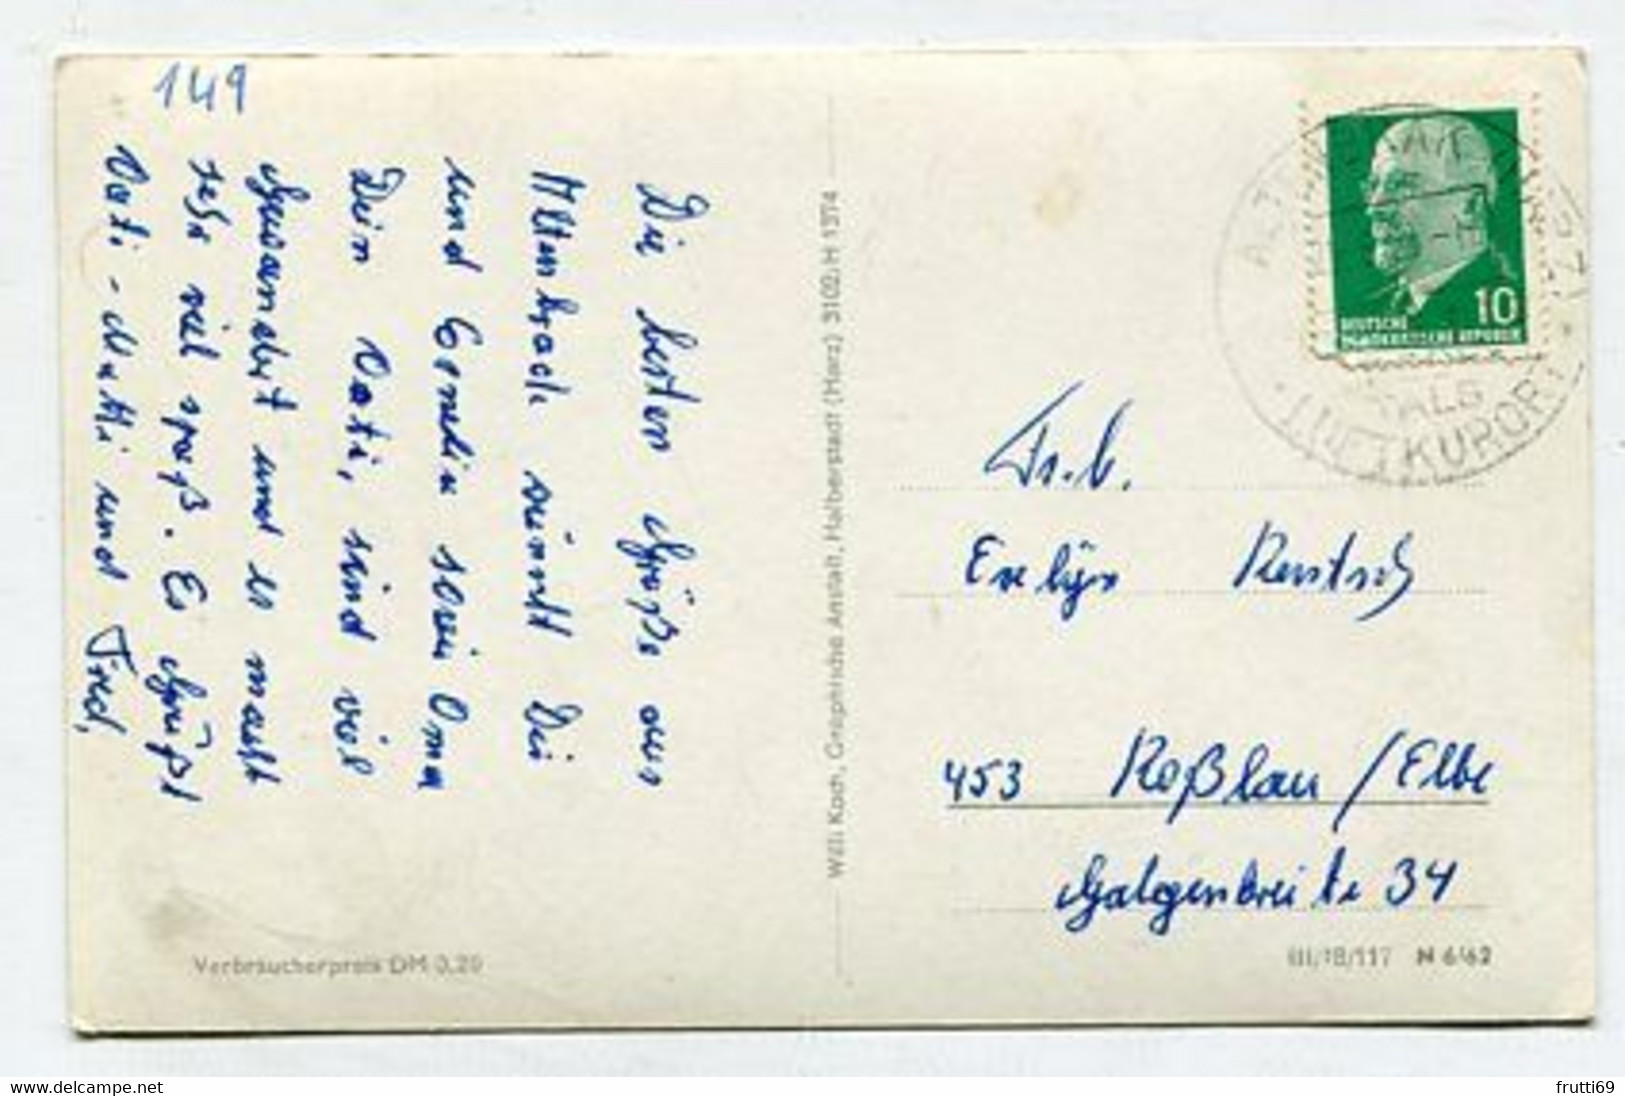 149
Die besten Grüße aus
Altenbrak sündt Dir
und Cornelia sowie Oma
Dein Vati, sind viel
Gewandert und es macht
sehr viel spaß. Es Grüßt
Vati - Mutti und Fred,
Verbraucherpreis DM 0,20
Willi Koch, Graphische Anstalt, Halberstadt (Harz) 3102/H 1374
10
DEUTSCHE
DEMOKRATISCHE REPUBLIK
LUFTKURORT
Frl.
Evelyn Rentsch
453 Roßlau/Elbe
Galgenbreite 34
III/18/117 N 6/62
www.delcampe.net
frutti69